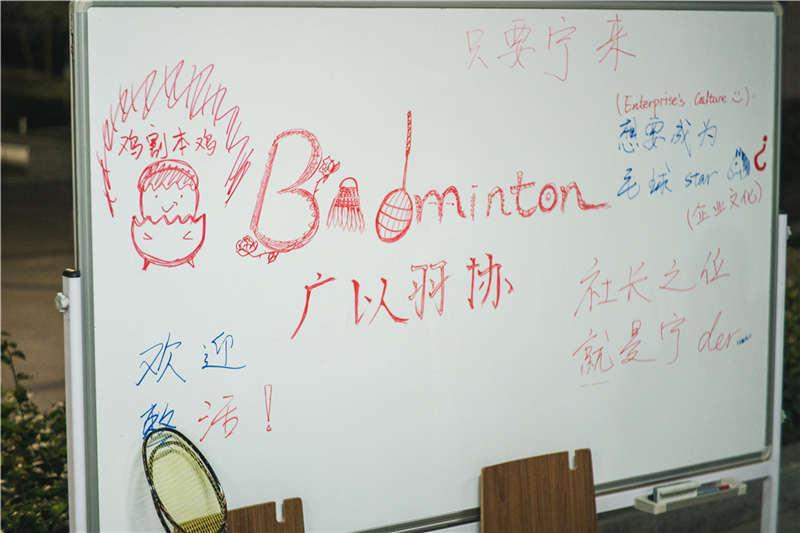 只要宁来
(Enterprise's Culture)
想要成为
毛球 star ?
(企业文化)
鸡割本鸡
Badminton
广以羽协
社长之位
就是宁der
欢迎
整活!